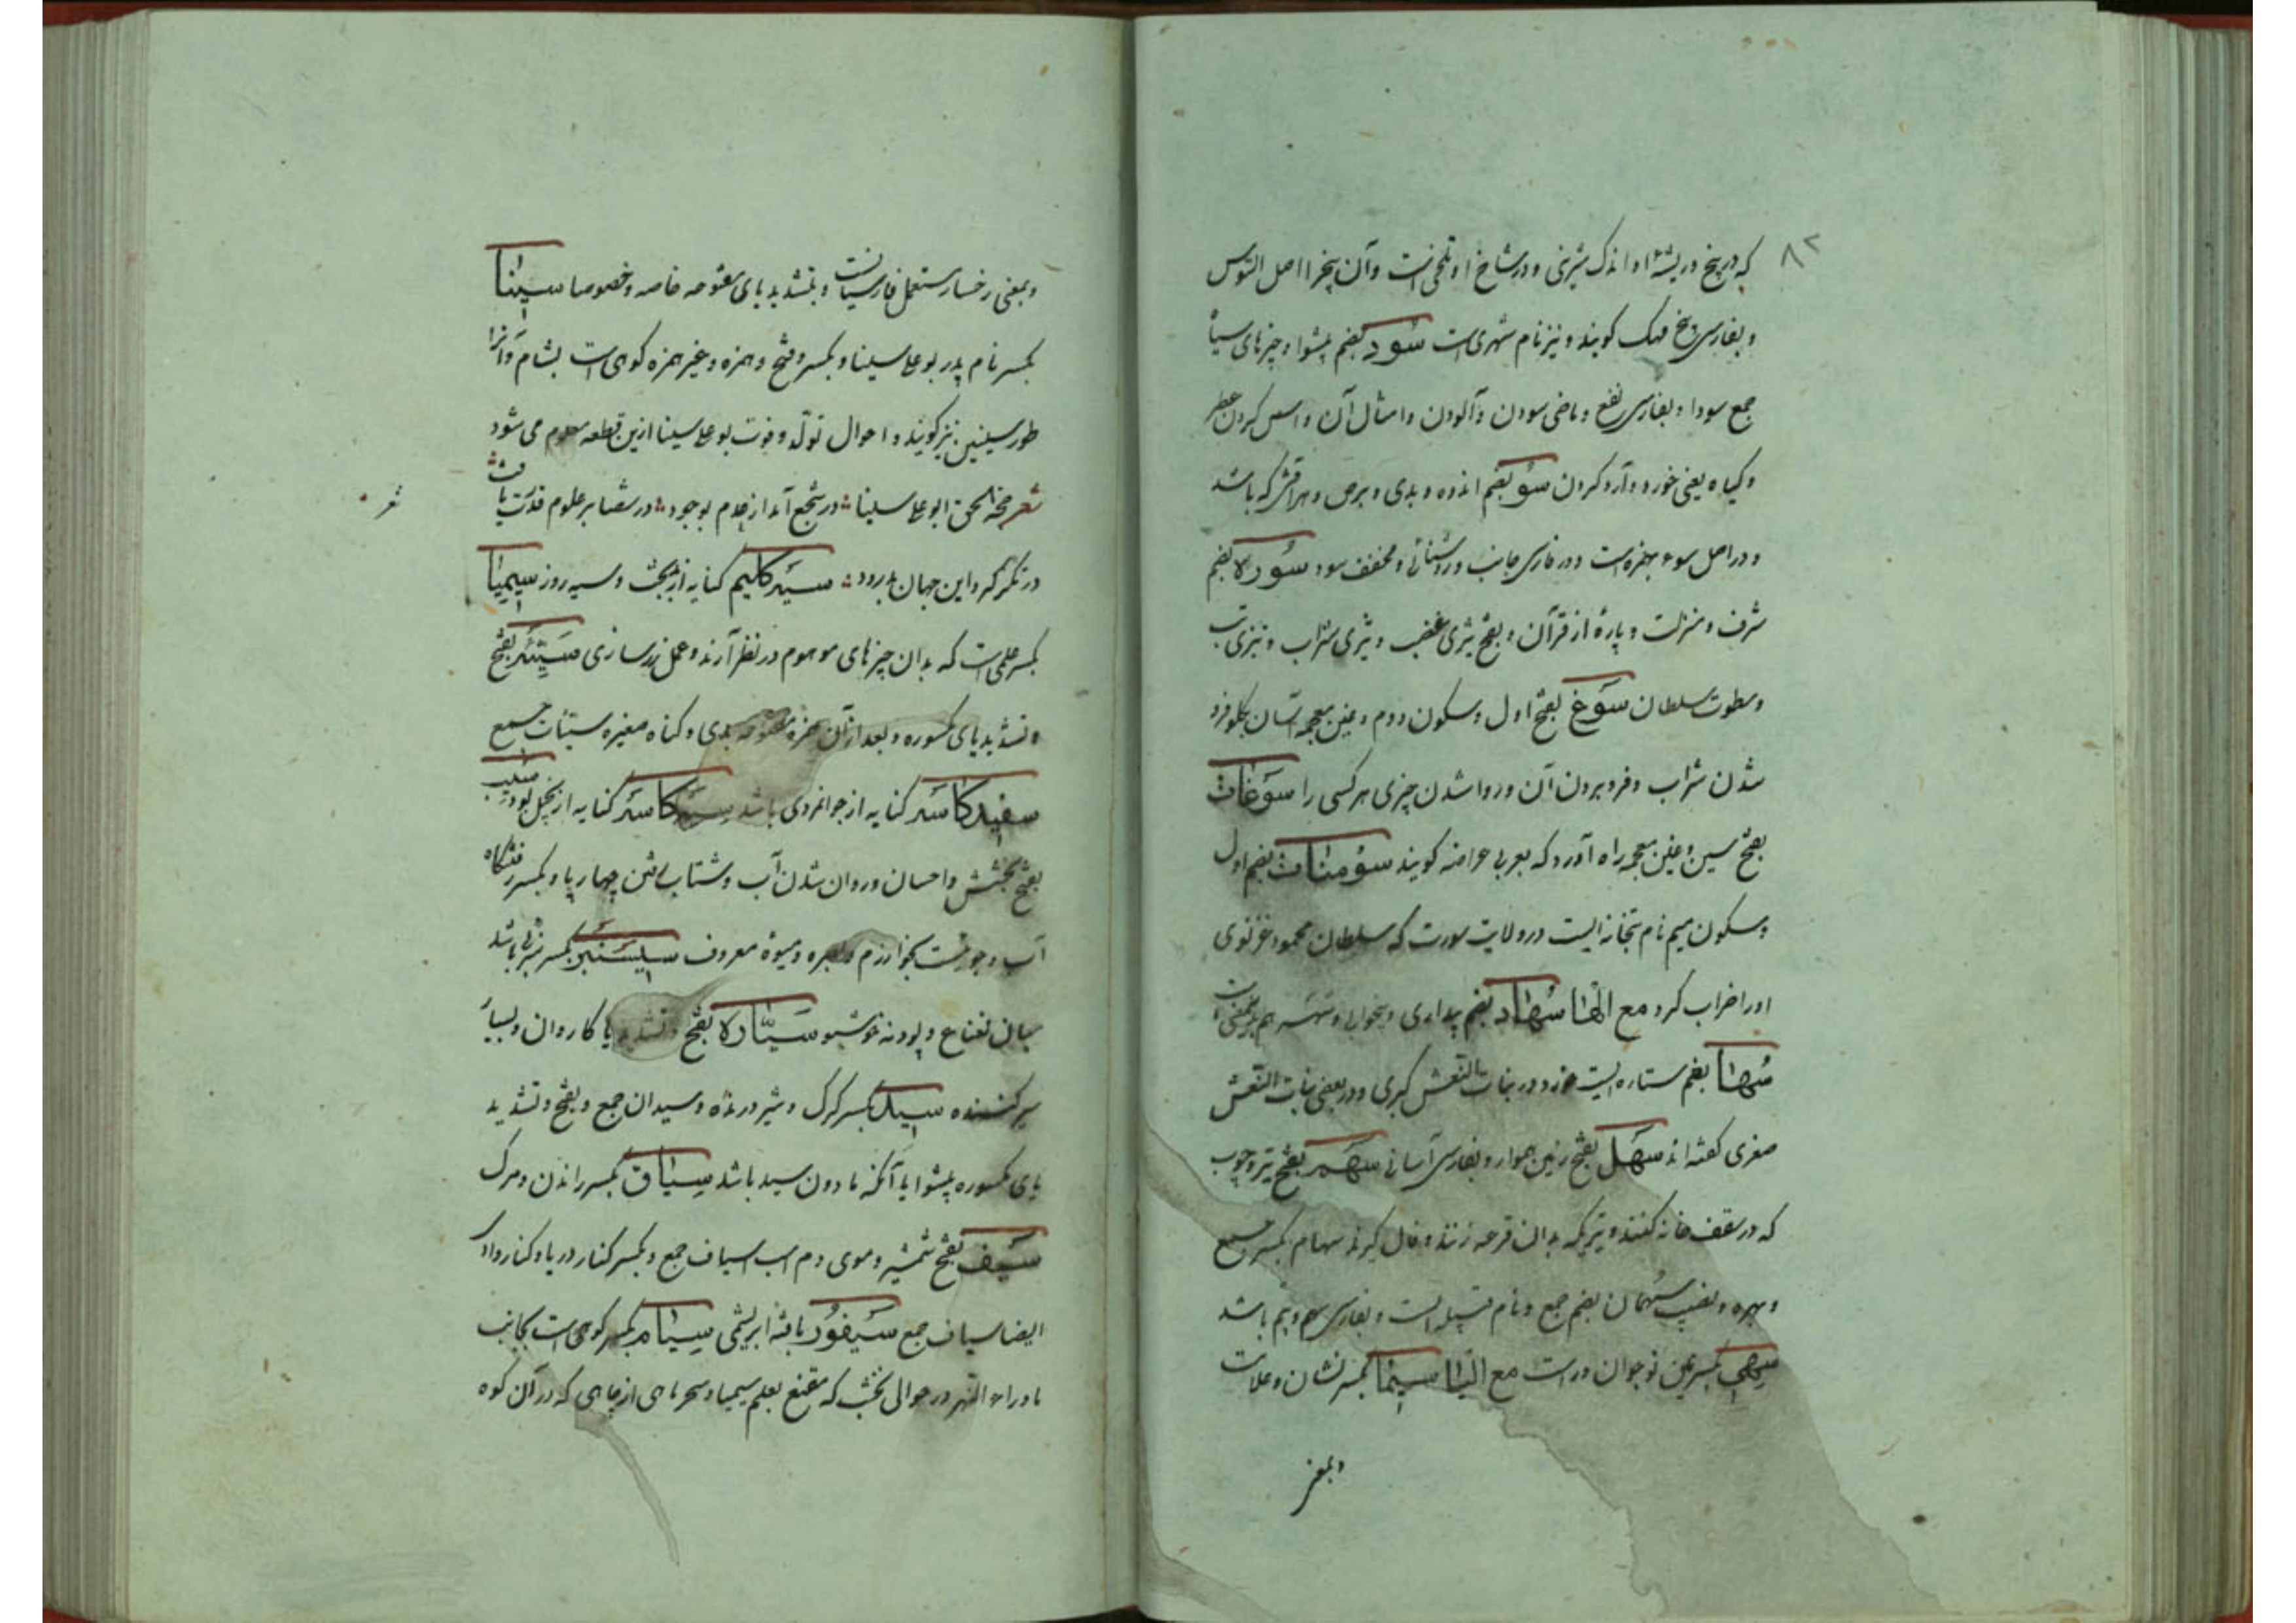 ۸۲
که در بیخ و ریشه او اندک شیرینی و در شاخ او تلخی است و آن بیخ را اصل السوس
و بفارسی بیخ مهک کویند و نیز نام شهری است سود بضم پیشوا و چیزهای سیاه
جمع سودا و بفارسی نفع و ماضی سودن و آلودن و امثال آن و اس کردن عطر
و کیاه یعنی خورد و آرد کردن سو بضم اندوه و بدی و برص و هر آفتی که باشد
و در اصل سوء بهمزه است و در فارسی جانب و روشنائی و مخفف سود سوره بضم
شرف و منزلت و پارهٔ از قرآن و بفتح تیزی غضب و تیزی شراب و تیزی تب
و سطوت سلطان سوغ بفتح اول و سکون دوم و غین معجمه آسان بکلو فرو
شدن شراب و فرو بردن آن و روا شدن چیزی هر کسی را سوغات
بفتح سین و غین معجمه راه آورد که بعربی عراضه کویند سومنات بضم اول
و سکون میم نام بتخانه ایست در ولایت سورت که سلطان محمود غزنوی
اورا خراب کرد مع الها سهاد بضم بیداری و بیخوابی و سهر هم باین معنی است
سها بضم ستاره ایست خرد در بنات النعش کبری و در بعضی بنات النعش
صغری کفته اند سهل بفتح زمین هموار و بفارسی آسانی سهم بفتح تیر و چوب
که در سقف خانه کنند و تیریکه بدان قرعه زنند و فال کیرند سهام بکسر جمع
و بهره و نصیب سهمان بضم جمع و نام قبیله ایست و بفارسی سهم و بیم باشد
سهی بکسرتین نوجوان و راست مع الیا سیما بکسر نشان و علامت
و بمعنی
و بمعنی رخسار مستعمل فارسیانست و بتشدید یای مفتوحه خاصه و خصوصا سینا
بکسر نام پدر بو علی سینا و بکسر و فتح و همزه و غیر همزه کوهی است بشام و آنرا
طور سینین نیز کویند و احوال تولد و فوت بو علی سینا ازین قطعه معلوم می شود
شعر حجة الحق ابو علی سینا در شجع آمد از عدم بوجود در شصا بر علوم قدرت یافت
شعر
در تکز کرد این جهان بدرود سیه کلیم کنایه از بدبخت و سیه روز سیمیا
بکسر علمی است که بدان چیزهای موهوم در نظر آرند و عمل زرسازی سیئه بفتح
و تشدید یای مکسوره و بعد از آن همزه مفتوحه بدی و کناه صغیره سیئات جمع
سفید کاسه کنایه از جوانمردی باشد سیه کاسه کنایه از بخیل بود سیب
بفتح بخشش و احسان و روان شدن آب و شتاب رفتن چهارپا و بکسر رفتنکاه
آب و جوئیست بخوارزم و بصره و میوهٔ معروف سیسنبر بکسر سبزئی باشد
میان نعناع و پودنه خوشبو سیاره بفتح و تشدید یا کاروان و بسیار
سیر کننده سید بکسر کرک و شیر درنده و سیدان جمع و بفتح و تشدید
یای مکسوره پیشوا با آنکه مادون سید باشد سیاق بکسر راندن و مرک
سیف بفتح شمشیر و موی دم اسب اسیاف جمع و بکسر کنار دریا و کنار وادی
ایضا سیاف جمع سیفور بافته ابریشمی سیام بکسر کوهی است بجانب
ماوراء النهر در حوالی نخشب که مقنع بعلم سیمیا و سحر ماهی از چاهی که در آن کوه